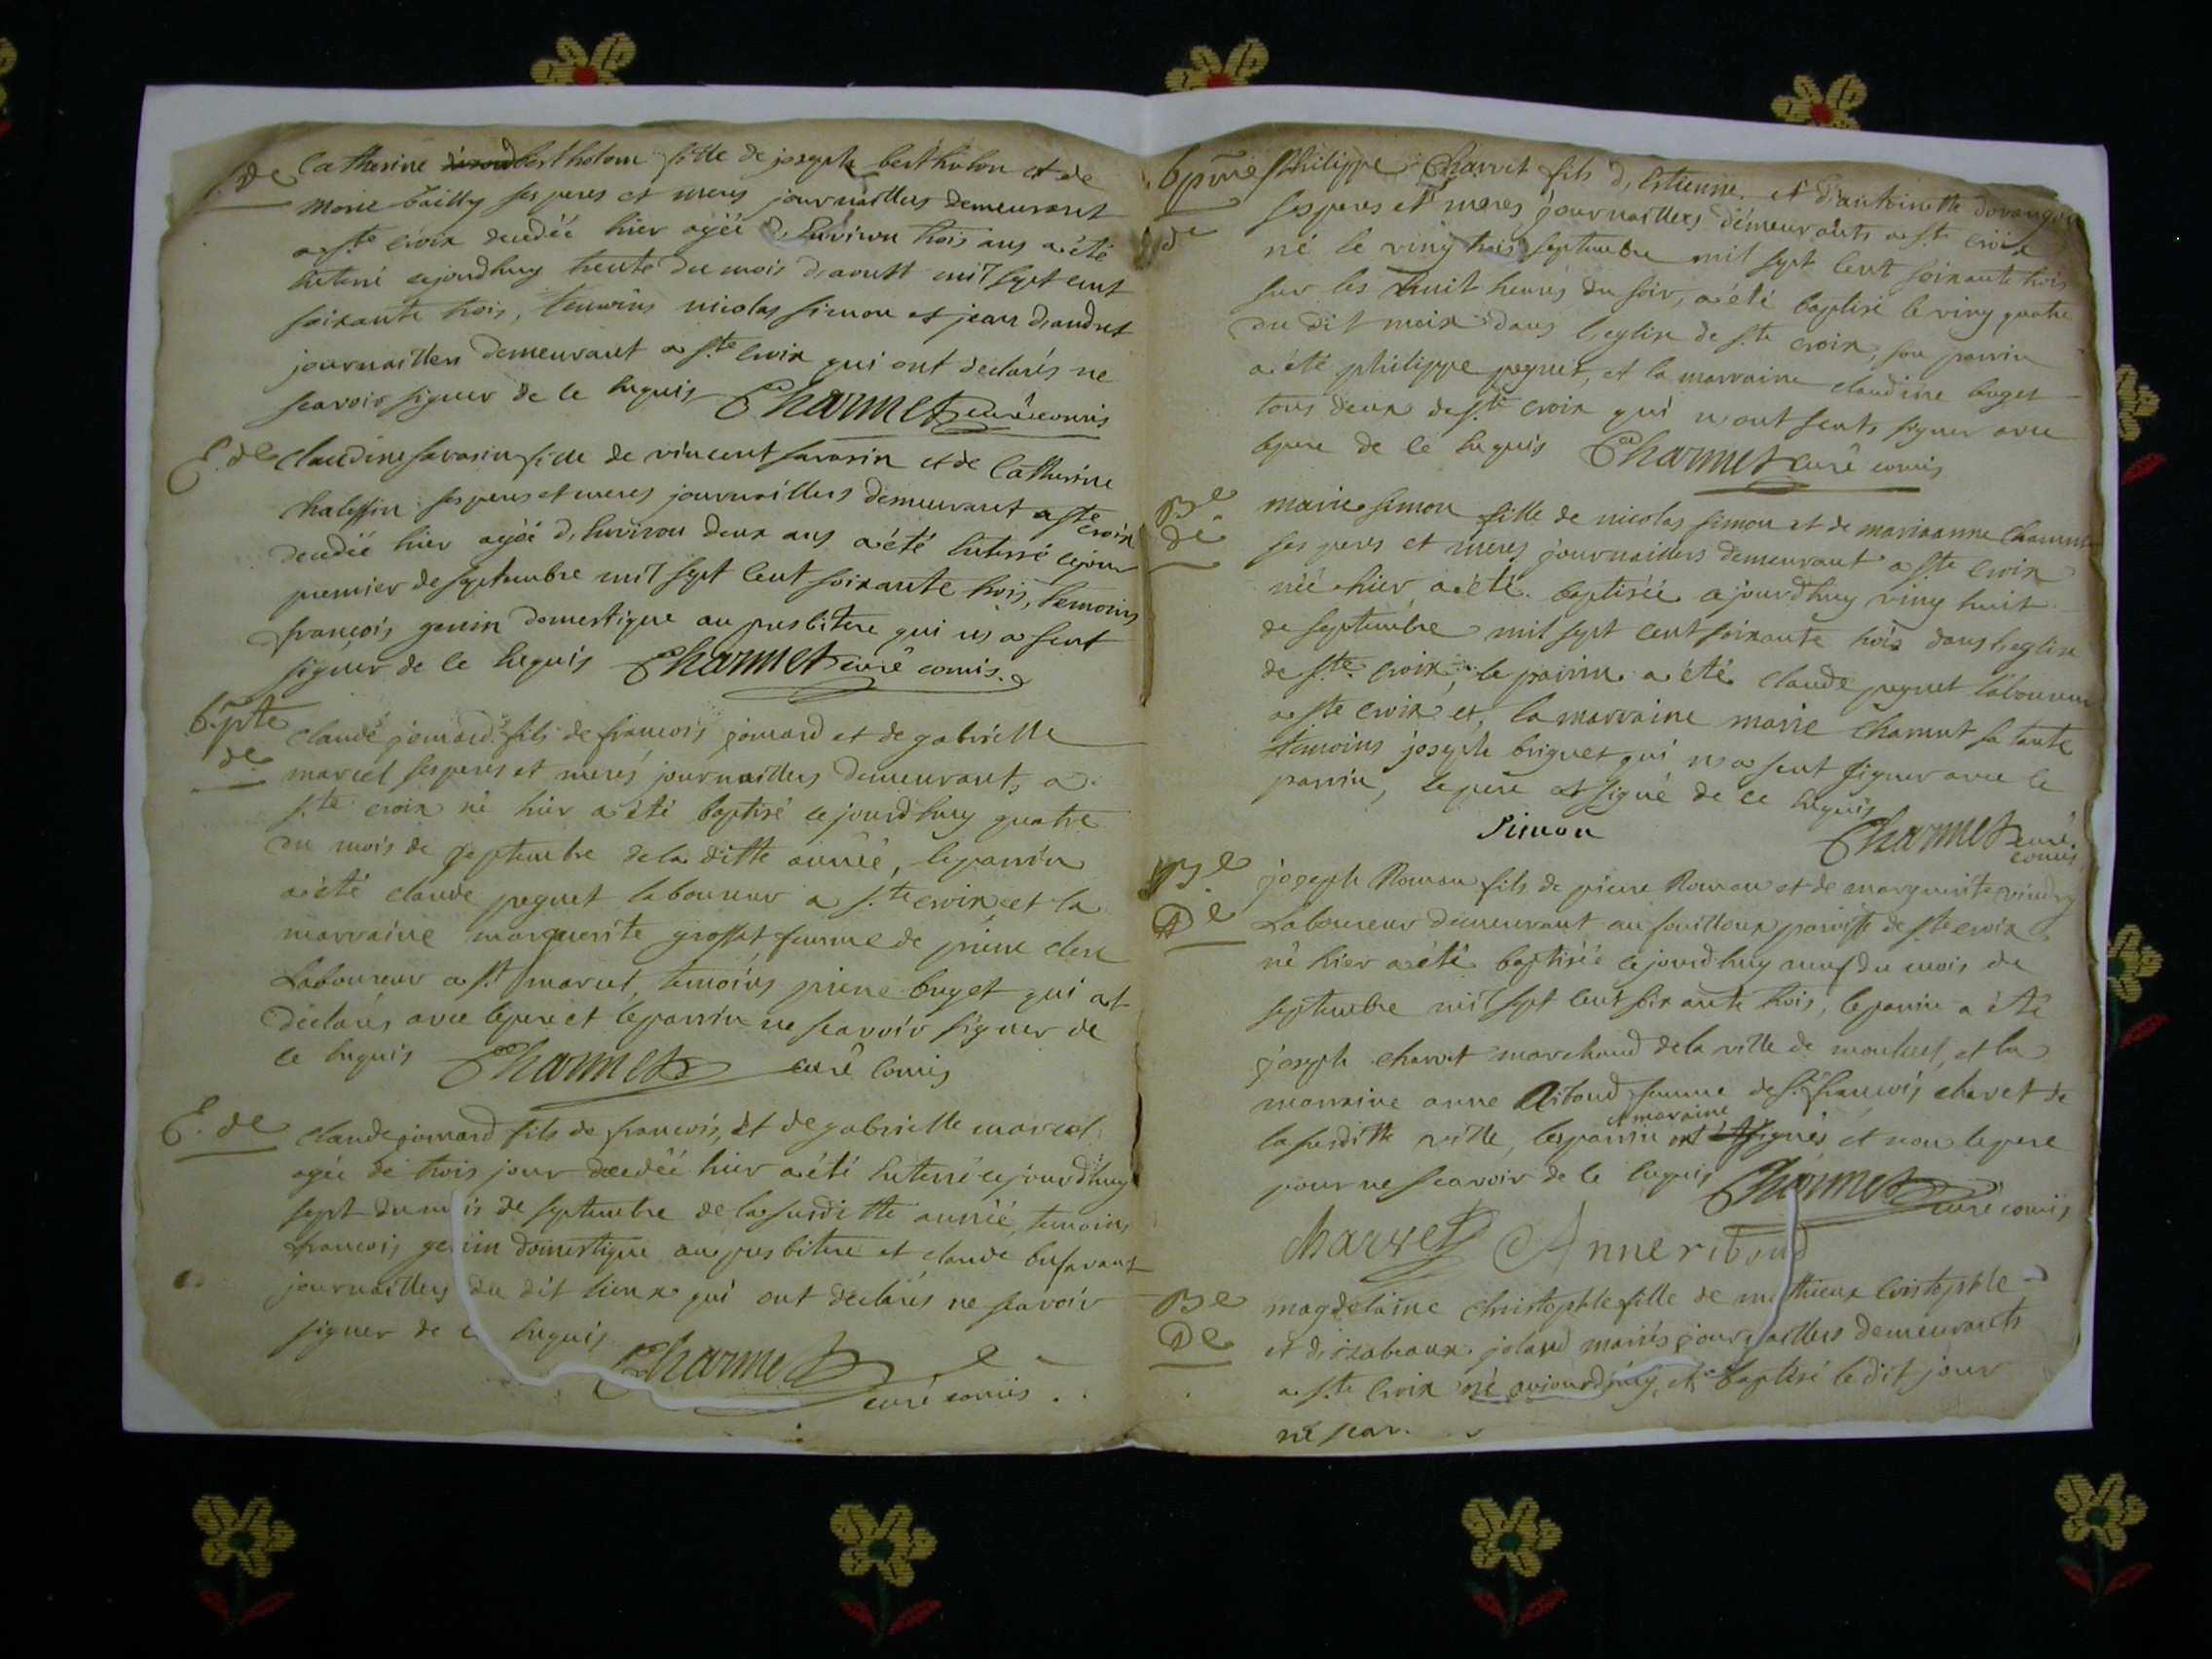 de Catherine bertholon fille de joseph bertholon et de
marie bailly ses peres et meres journaillers demeurant
a ste croix decedée hier agée d'environ trois ans a été
enterré cejourdhuy trente du mois d'aoust mil sept cent
soixante trois, temoins nicolas simon et jean drandret
journaillers demeurant a ste croix qui ont declarés ne
scavoir signer de ce requis Charmet curé comis
E. de claudine savarin fille de vincent savarin et de Catherine
ses peres et meres journaillers demeurant a ste croix
decedée hier agée d'environ deux ans a été enterré cejour
premier de septembre mil sept cent soixante trois, temoins
françois genin domestique au presbitere qui n'a sceut
signer de ce requis Charmet curé comis.
bpte claude jomard fils de françois jomard et de gabrielle
de marcel ses peres et meres journaillers demeurants a
ste croix né hier a été baptisé cejourdhuy quatre
du mois de septembre de la ditte année, le parrin
a été claude peguet laboureur a ste croix et la
marraine marguerite grossat femme de pierre clerc
Laboureur a st marcel, temoins pierre buget qui at
declarés avec le pere et le parrin ne scavoir signer de
ce requis Charmet curé comis
E. de claude jomard fils de françois, et de gabrielle marcel
agée de trois jour decedée hier a été enterré cejourdhuy
sept du mois de septembre de la susditte année, temoins
françois genin domestique au presbitere et claude bufavant
journaillers du dit lieux qui ont declarés ne scavoir
signer de ce requis
Charmet
curé comis.
Philippe Charvet fils d'Estienne et d'antoinette
de ses peres et meres journaillers demeurants a ste croix
né le ving trois septembre mil sept cent soixante trois
sur les huit heures du soir, a été baptisé le ving quatre
du dit mois dans l'eglise de ste croix, son parrin
a été philippe peguet, et la marraine claudine buget
tous deux de ste croix qui n'ont sceuts signer avec
le pere de ce requis Charmet curé comis
Be marie simon fille de nicolas simon et de marieanne
de ses peres et meres journaillers demeurant a ste croix
née hier a été baptisée ajourdhuy ving huit
de septembre mil sept cent soixante trois dans l'eglise
de ste croix, le parrin a été claude peguet laboureur
a ste croix et, la marraine marie Charmet sa tante
temoins joseph briguet qui n'a sceut signer avec le
parrin, le pere at signé de ce requis
Simon Charmet curé
comis
Be joseph Roman fils de pierre Roman et de marguerite vindry
De Laboureur demeurant au fouilloux paroisse de ste croix
né hier a été baptisée cejourdhuy neuf du mois de
septembre mil sept cent soixante trois, le parrin a été
joseph charvet marchand de la ville de monluel, et la
marraine anne Riboud femme de sr françois charvet de
et maraine
la susditte ville, les parrin ont signés et non le pere
pour ne scavoir de ce requis Charmet curé comis
Charvet Anne riboud
Be magdelaine christophle fille de mathieux Cristophle
De et d'izabeaux joland mariés journaillers demeurants
a ste Croix né aujourdhuy, et baptisé le dit jour
ne scav.